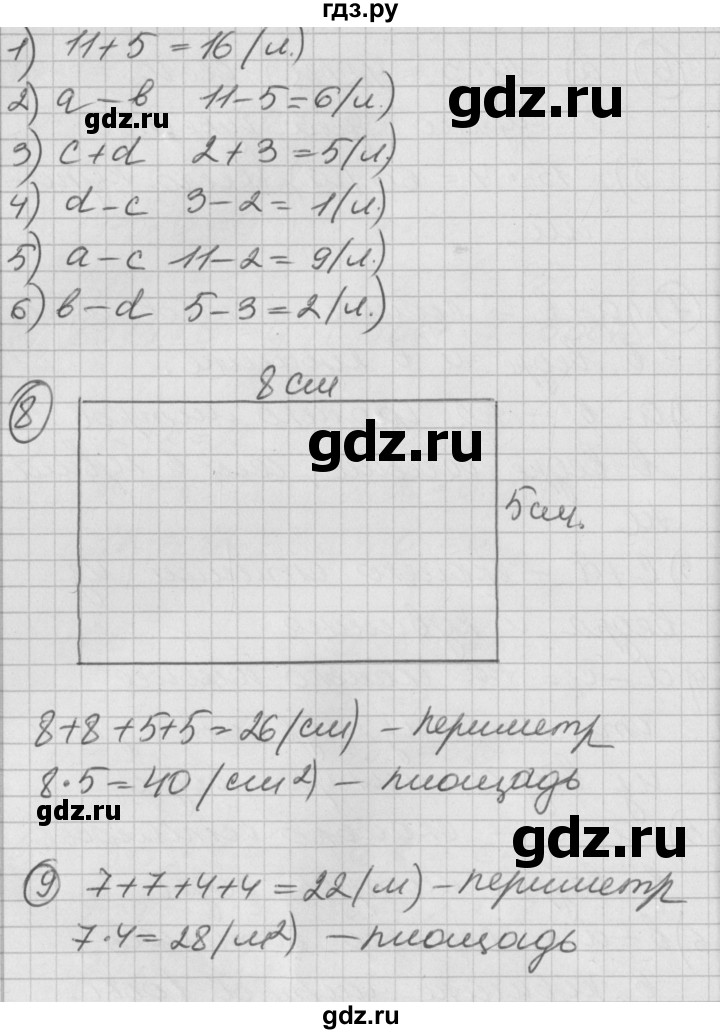 гдз.ру
1) 11+5 = 16 (л.)
2) a – b 11–5=6(л.)
gdz.ru
gdz.ru
3) c+d 2+3=5(л.)
4) d–c 3–2= 1(л.)
5) a–c 11–2= 9(л.)
6) b–d 5–3=2(л.)
8 8 см
gdz.ru
5см.
8+8+5+5=26(см) – периметр
8·5=40(см²) – площадь
gdz.ru
gdz.ru
9 7+7+4+4=22(м) – периметр
7·4=28(м²) – площадь
gdz.ru